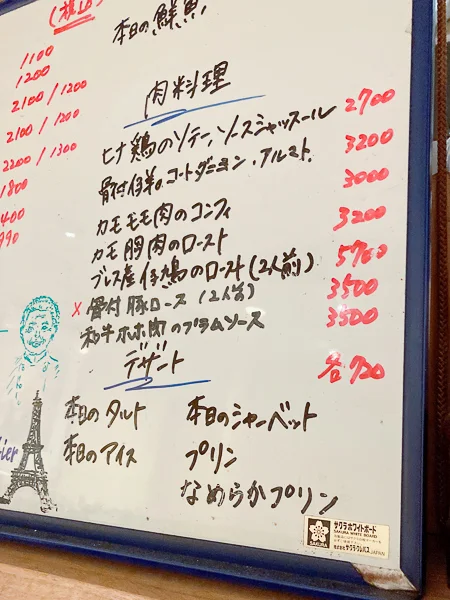 本日の鮮魚
1100
1200
2100 / 1200
2100 / 1200
2200 / 1300
1800
400
990
肉料理
ヒナ鶏のソテー、ソースシャッスール 2700
骨付仔羊のコートダニョン、アルミト. 3200
カモモモ肉のコンフィ 3000
カモ胸肉のロースト 3200
ブレス産仔鳩のロースト(2人前) 5700
x 骨付豚ロース (2人前) 3500
和牛ホホ肉のプラムソース 3500
デザート 各720
本日のタルト 本日のシャーベット
本日のアイス プリン
なめらかプリン
サクラホワイトボード
SAKURA WHITE BOARD
SAKURA
株式会社サクラクレパス JAPAN